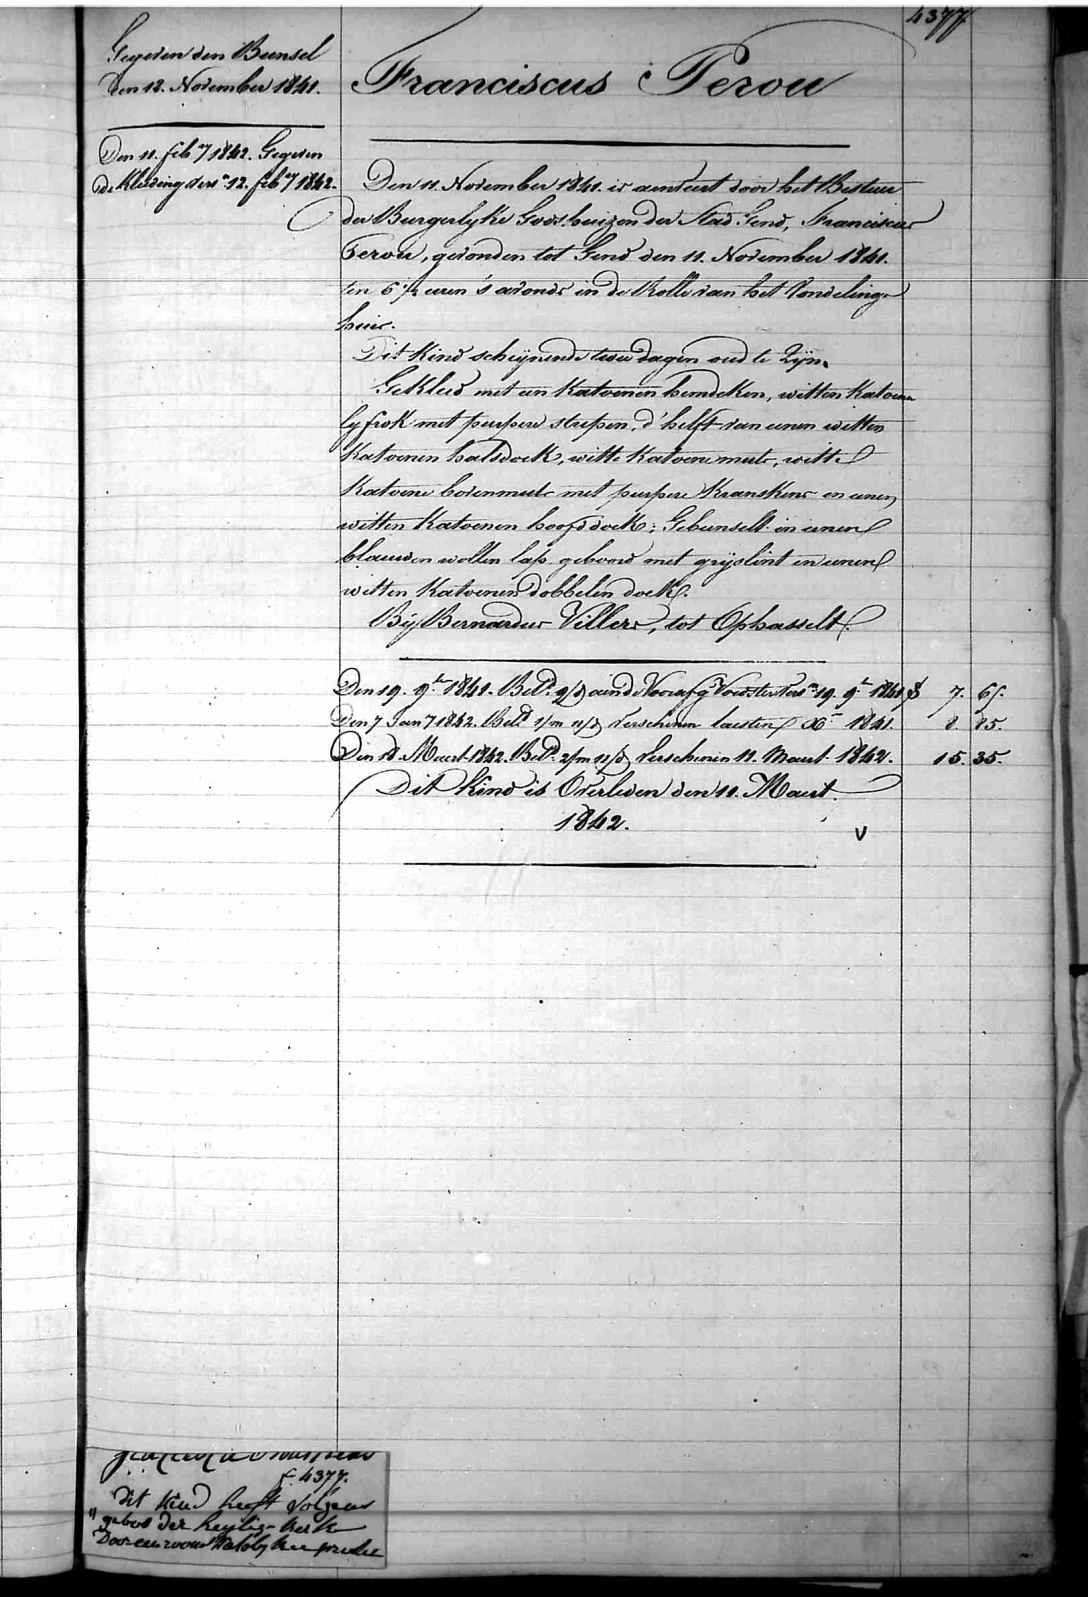 4377
Gegeven den Bunsel
den 12. November 1841.
Den 11. feb.ry 1842. Gegeven
de Kleeding vers.n 12. feb.ry 1842.
Franciscus Perou
Den 11. November 1841. is aenveert door het Bestuur
der Burgerlyke Godshuizen der Stad Gend, Franciscus
Perou, gevonden tot Gend den 11. November 1841.
ten 6 ½ uren 's avonds in de Rolle van het Vondelinge
huis.
Dit Kind schijnende twee dagen oud te zijn.
Gekleed met een Katoenen hemdeken, witten Katoenen
lyfrok met purpere strepen, d'helft van eenen witten
Katoenen halsdoek, witte Katoene muts, witte
Katoene bovenmuts met purpere Kranskens en eenen
witten Katoenen hoofddoek; Gebunselt in eenen
blauwen wollen lap geboord met grijslint en eenen
witten Katoenen dobbelen doek.
Bij Bernardus Villers, tot Ophasselt.
Den 19. 9.r 1841. Bet.d aen de Voorzg Voedster Vers.n 19. 9.r 1841 7. 65.
Den 7 Jan.y 1842. Bet.d 1/m verschenen laesten X.r 1841. 8. 85.
Den 18. Maert 1842. Bet.d 2/m verschenen 11. Maert 1842. 15. 35.
Dit Kind is Overleden den 11. Maert
1842.
V
f. 4377.
dit kind heeft volgens
gebod der heylig- kerk